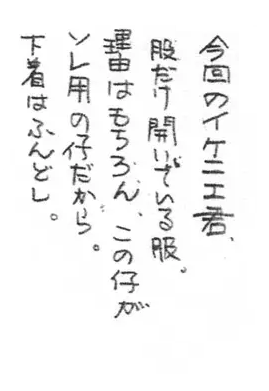 今回のイケニエ君、
股だけ開いている服。
理由はもちろん、この仔が
ソレ用の仔だから。
下着はふんどし。